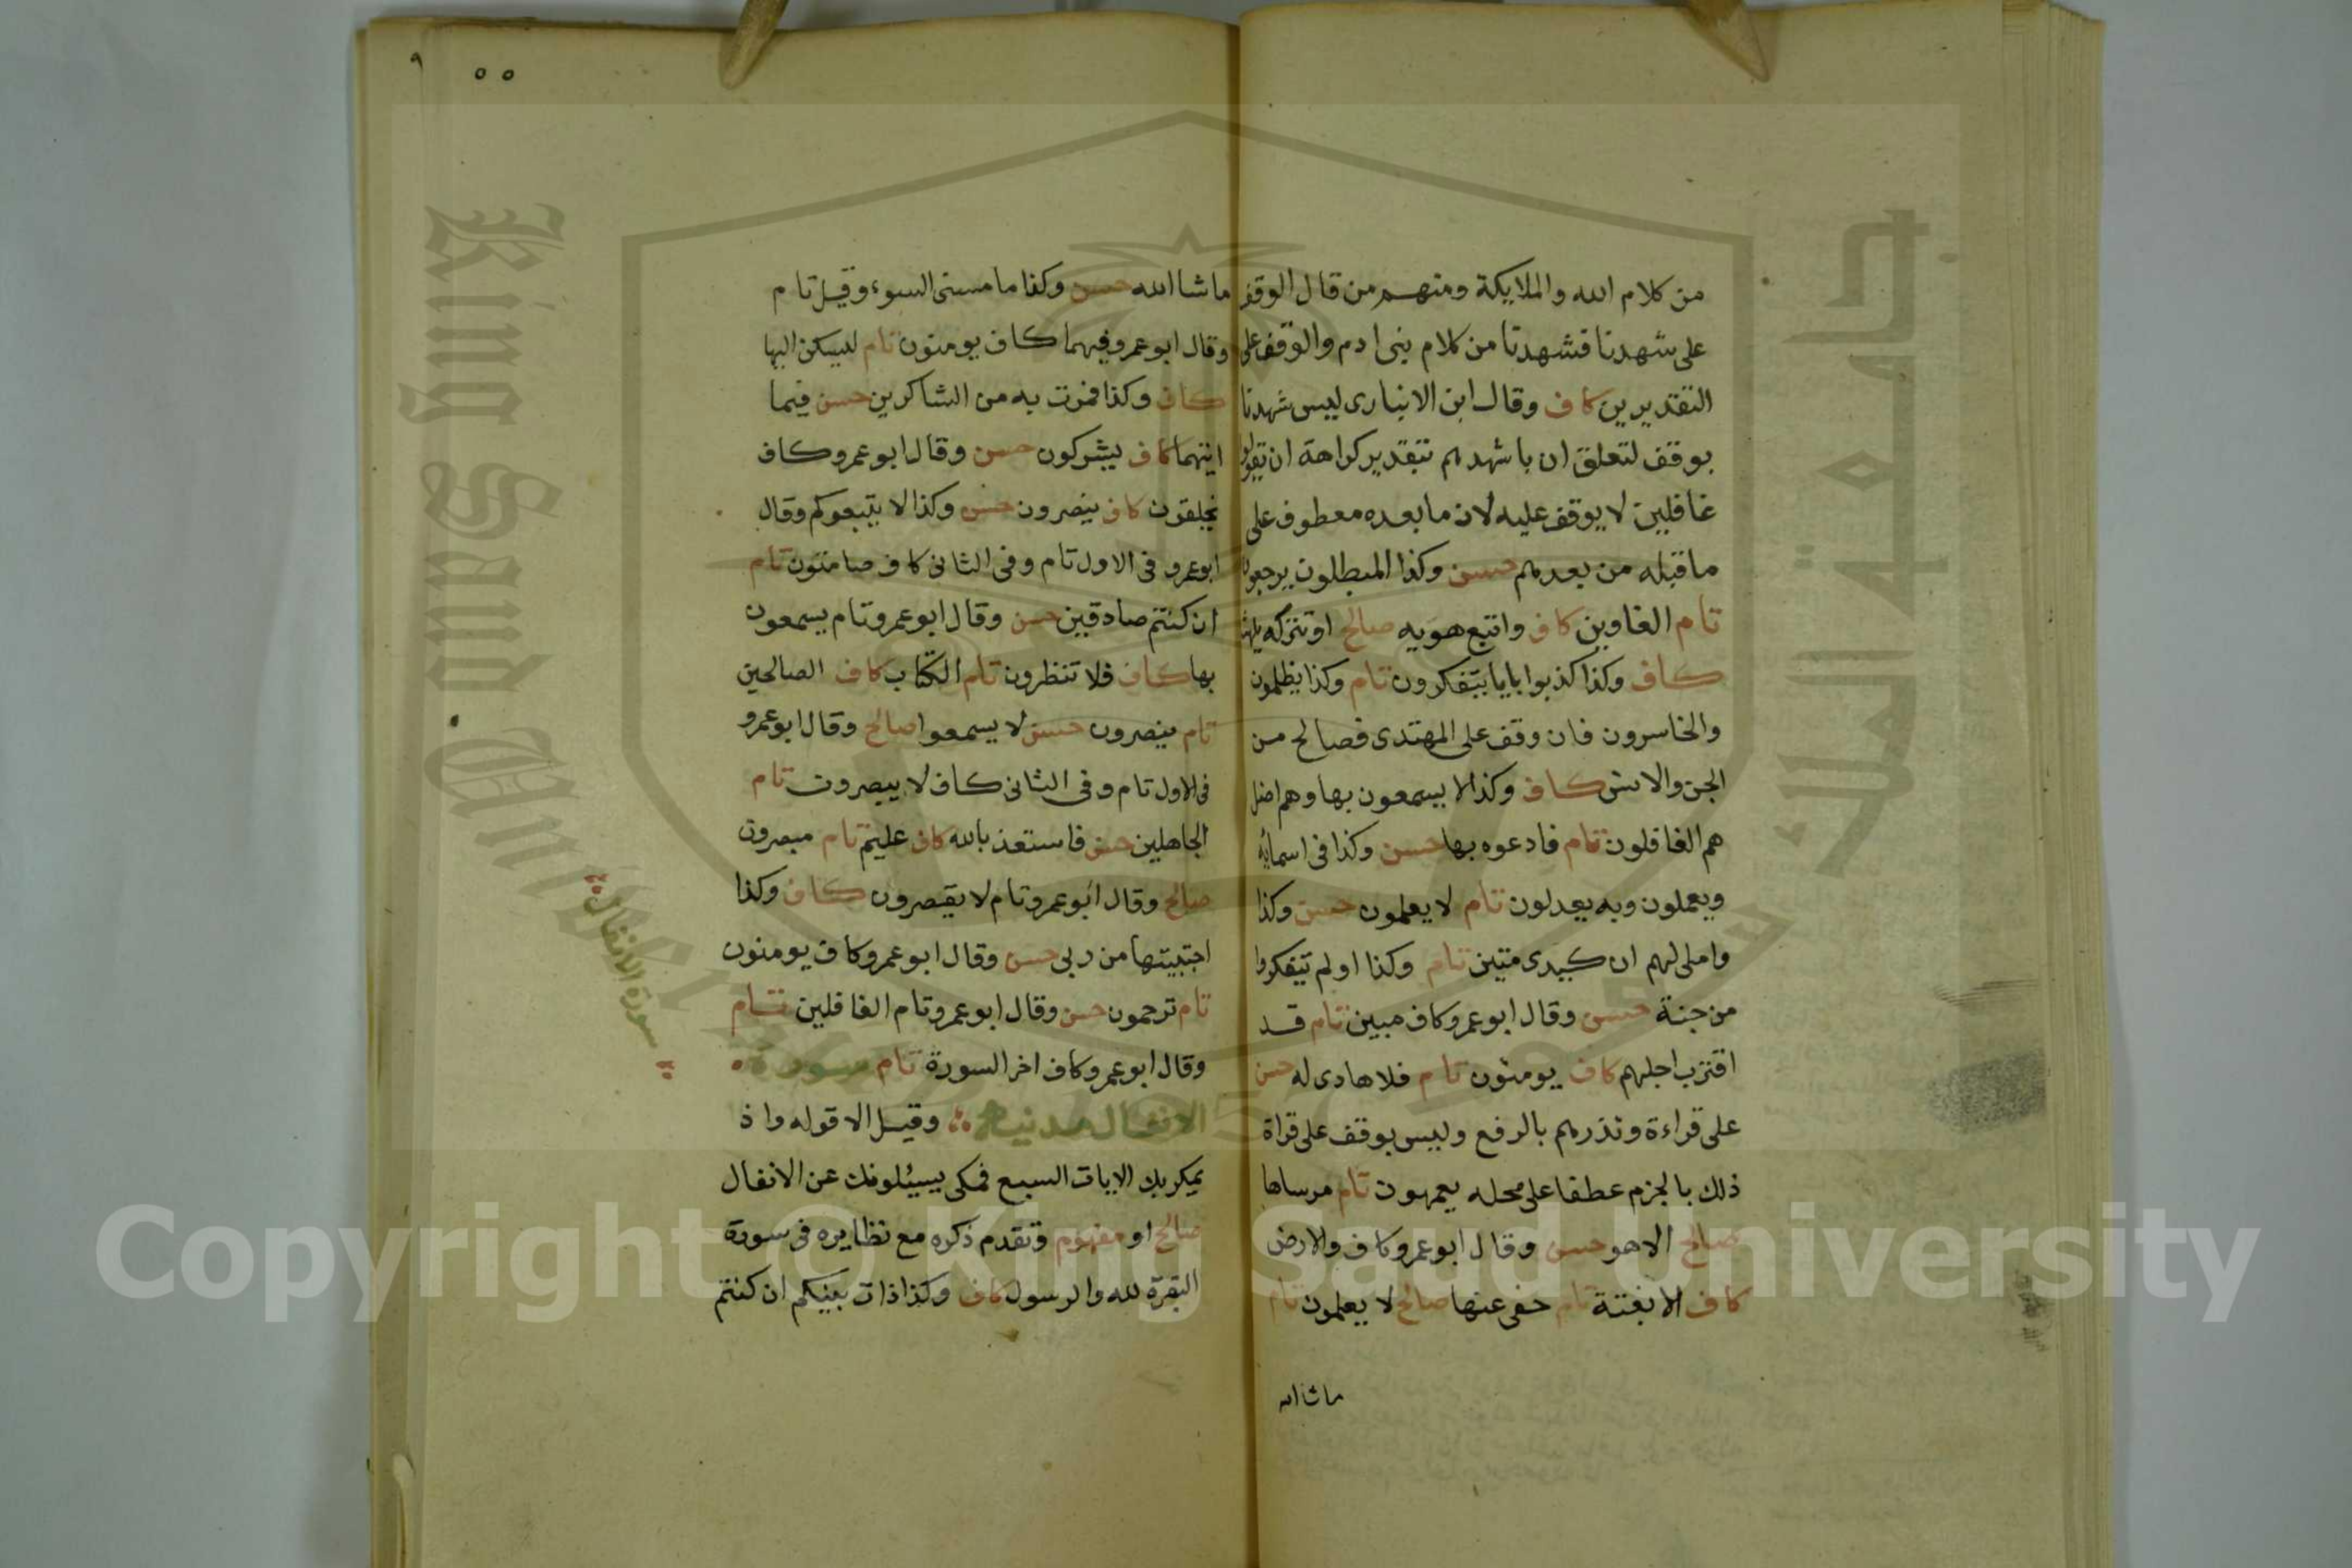 من كلام الله والملايكة ومنهم من قال الوقف
على شهدنا فشهدنا من كلام بنى ادم والوقف على
التقديرين كاف وقال ابن الانبارى ليس شهدنا
بوقف لتعلق ان باشهدهم بتقدير كراهة ان تقولوا
غافلين لا يوقف عليه لان ما بعده معطوف على
ما قبله من بعدهم حسن وكذا المبطلون يرجعون
تام الغاوين كاف واتبع هويه صالح او تتركه يلهث
كاف وكذا كذبوا باياتنا يتفكرون تام وكذا يظلمون
والخاسرون فان وقف على المهتدى فصالح من
الجن والانس كاف وكذا لا يسمعون بها وهم اضل
هم الغافلون تام فادعوه بها حسن وكذا فى اسمائه
ويعملون وبه يعدلون تام لا يعلمون حسن وكذا
واملى لهم ان كيدى متين تام وكذا اولم يتفكروا
من جنة حسن وقال ابو عمرو كاف مبين تام قد
اقترب اجلهم كاف يومنون تام فلا هادى له حسن
على قراءة ونذرهم بالرفع وليس بوقف على قراة
ذلك بالجزم عطفا على محله يعمهون تام مرساها
صالح الا هو حسن وقال ابو عمرو كاف والارض
كاف الا بغتة تام حفى عنها صالح لا يعلمون تام
ماشا الله
٩
٥٥
ماشا الله حسن وكذا ما مسنى السوء وقيل تام
وقال ابو عمرو فيهما كاف يومنون تام ليسكن اليها
كاف وكذا فمرت به من الشاكرين حسن فيما
اتيهما كاف يشركون حسن وقال ابو عمرو كاف
يخلقون كاف ينصرون حسن وكذا لا يتبعوكم وقال
ابو عمرو فى الاول تام وفى الثانى كاف صامتون تام
ان كنتم صادقين حسن وقال ابو عمرو تام يسمعون
بها كاف فلا تنظرون تام الكتاب كاف الصالحين
تام ينصرون حسن لا يسمعوا صالح وقال ابو عمرو
فى الاول تام وفى الثانى كاف لا يبصرون تام
الجاهلين حسن فاستعذ بالله كاف عليم تام مبصرون
صالح وقال ابو عمرو تام لا يقصرون كاف وكذا
اجتبيتها من ربى حسن وقال ابو عمرو كاف يومنون
تام ترحمون حسن وقال ابو عمرو تام الغافلين تام
وقال ابو عمرو كاف اخر السورة تام سورة
الانفال مدنية وقيل الا قوله واذ
يمكر بك الايات السبع فمكى يسئلونك عن الانفال
صالح او مفهوم وتقدم ذكره مع نظايره فى سورة
البقرة لله والرسول كاف وكذا ذات بينكم ان كنتم
سورة الانفال
King Saud University
جامعة الملك سعود
1957
Copyright © King Saud University